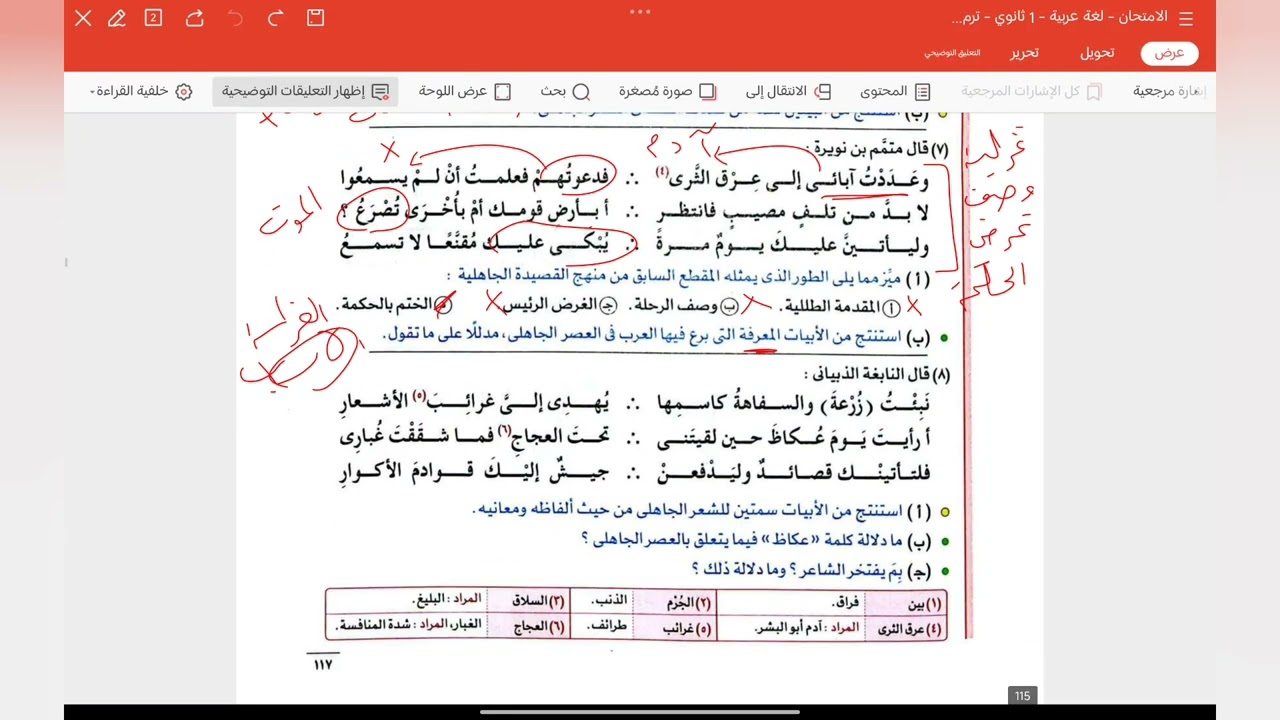 الامتحان - لغة عربية - 1 ثانوي - ترم...
2
عرض
تحويل
تحرير
التعليق التوضيحي
إشارة مرجعية
كل الإشارات المرجعية
المحتوى
الانتقال إلى
صورة مُصغرة
بحث
عرض اللوحة
إظهار التعليقات التوضيحية
خلفية القراءة
(٧) قال متمَّم بن نويرة :
وعَـدَدْتُ آبائـى إلـى عِـرْق الثَّرى (٤) ∴ فدعوتُهـمْ فعلمـتُ أنْ لـمْ يسـمعُوا
لا بـدَّ مـن تلـفٍ مصيـبٍ فانتظـر ∴ أ بـأرضِ قومـك أمْ بأُخْـرَى تُصْـرَعُ ؟
وليـأتيـنَّ عليـكَ يـومٌ مـرةً ∴ يُبْكَـى عليـك مُقنَّعًـا لا تسمـعُ
(أ) ميِّز مما يلى الطور الذى يمثله المقطع السابق من منهج القصيدة الجاهلية :
أ المقدمة الطللية. ب وصف الرحلة. ج الغرض الرئيس. الختم بالحكمة.
(ب) استنتج من الأبيات المعرفة التى برع فيها العرب فى العصر الجاهلى، مدللًا على ما تقول.
آدم
الموت
غزلية
وصف
غرض
الحكمة
(٨) قال النابغة الذبيانى :
نَبِئْـتُ (زُرْعـةَ) والسـفاهةُ كاسـمِها ∴ يُهـدِى إلـىَّ غرائـبَ (٥) الأشـعارِ
أ رأيـتَ يـومَ عُـكاظَ حيـن لقيتَنـى ∴ تحـتَ العجـاجِ (٦) فمـا شـقَقْتَ غُبارِى
فلتـأتينْـك قصائـدٌ وليَـدْفعـنْ ∴ جيـشٌ إليْـكَ قـوادمَ الأكـوارِ
(أ) استنتج من الأبيات سمتين للشعر الجاهلى من حيث ألفاظه ومعانيه.
(ب) ما دلالة كلمة «عكاظ» فيما يتعلق بالعصر الجاهلى ؟
(ج) بِمَ يفتخر الشاعر ؟ وما دلالة ذلك ؟
(١) بين فراق. (٢) الجُرْم الذنب. (٣) السلاق المراد : البليغ.
(٤) عرق الثرى المراد : آدم أبو البشر. (٥) غرائب طرائف. (٦) العجاج الغبار، المراد : شدة المنافسة.
١١٧
115